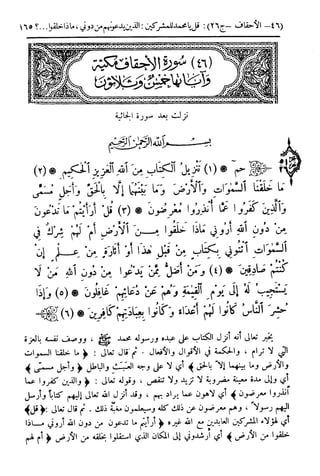 (٤٦- الأحقاف -ج٢٦): قل يا محمد للمشركين: الذين يدعونهم من دوني، ماذا خلقوا...؟ ١٦٥
(٤٦) سُورَةُ الأحْقَافِ مَكِّيَّة
وَآيَاتُهَا خَمْسٌ وَثَلَاثُونَ
نزلت بعد سورة الجاثية
بِسْمِ اللهِ الرَّحْمٰنِ الرَّحِيمِ
حمٓ * (١) تَنْزِيلُ الْكِتَابِ مِنَ اللهِ الْعَزِيزِ الْحَكِيمِ * (٢)
مَا خَلَقْنَا السَّمَوَاتِ وَالْأَرْضَ وَمَا بَيْنَهُمَا إِلَّا بِالْحَقِّ وَأَجَلٍ مُسَمًّى
وَالَّذِينَ كَفَرُوا عَمَّا أُنْذِرُوا مُعْرِضُونَ * (٣) قُلْ أَرَأَيْتُمْ مَا تَدْعُونَ
مِنْ دُونِ اللهِ أَرُونِي مَاذَا خَلَقُوا مِنَ الْأَرْضِ أَمْ لَهُمْ شِرْكٌ فِي
السَّمَوَاتِ ائْتُونِي بِكِتَابٍ مِنْ قَبْلِ هَذَا أَوْ أَثَارَةٍ مِنْ عِلْمٍ إِنْ
كُنْتُمْ صَادِقِينَ * (٤) وَمَنْ أَضَلُّ مِمَّنْ يَدْعُوا مِنْ دُونِ اللهِ مَنْ لَا
يَسْتَجِيبُ لَهُ إِلَى يَوْمِ الْقِيَمَةِ وَهُمْ عَنْ دُعَائِهِمْ غَافِلُونَ * (٥) وَإِذَا
حُشِرَ النَّاسُ كَانُوا لَهُمْ أَعْدَاءً وَكَانُوا بِعِبَادَتِهِمْ كَافِرِينَ * (٦)
يخبر تعالى أنه أنزل الكتاب على عبده ورسوله محمد ، ووصف نفسه بالعزة
التي لا ترام ، والحكمة في الأقوال والأفعال . ثم قال تعالى : * ما خلقنا السموات
والأرض وما بينهما إلا بالحق * أي لا على وجه العبث والباطل * وأجل مسمى *
أي وإلى مدة معينة مضروبة لا تزيد ولا تنقص ، وقوله تعالى : * والذين كفروا عما
أنذروا معرضون * أي لاهون عما يراد بهم ، وقد أنزل الله تعالى إليهم كتابا وأرسل
إليهم رسولا ، وهم معرضون عن ذلك كله وسيعلمون مغبّة ذلك . ثم قال تعالى : * قل *
أي لهؤلاء المشركين العابدين مع الله غيره * أرأيتم ما تدعون من دون الله أروني ماذا
خلقوا من الأرض * أي أرشدوني إلى المكان الذي استقلوا بخلقه من الأرض * أم لهم